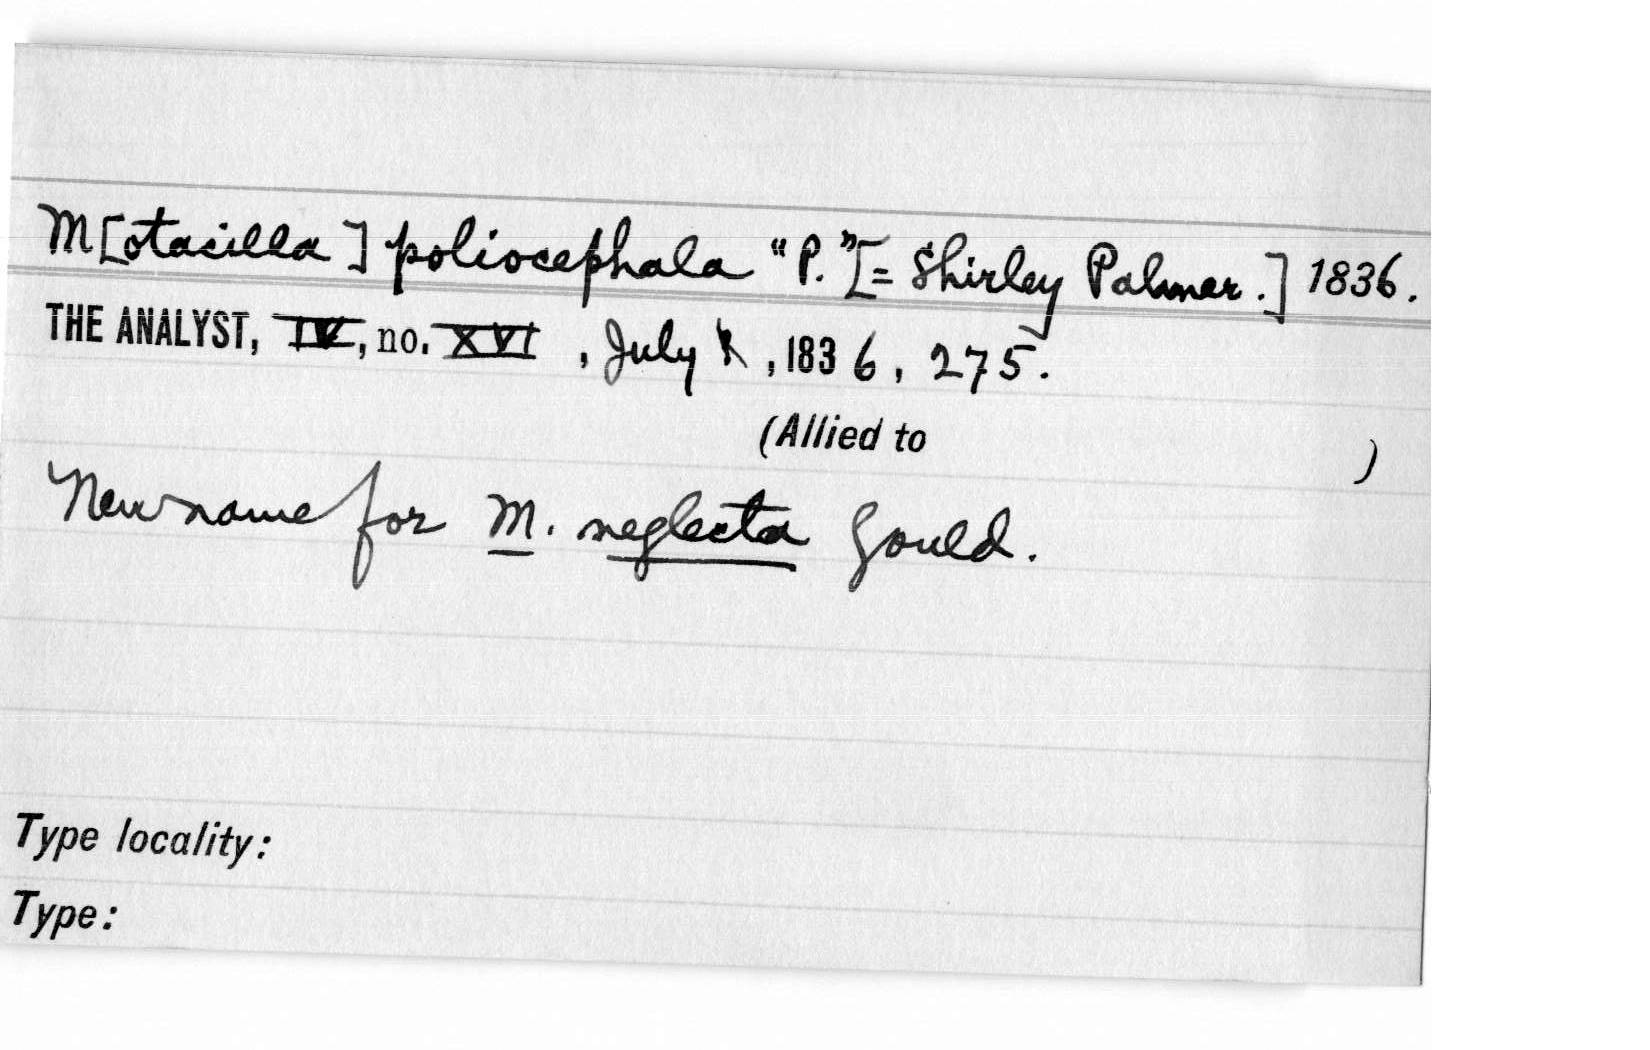 M[otacilla] poliocephala "P."[= Shirley Palmer.] 1836.
THE ANALYST, IV, no. XVI, July, 1836, 275.
(Allied to )
New name for M. neglecta Gould.
Type locality:
Type: